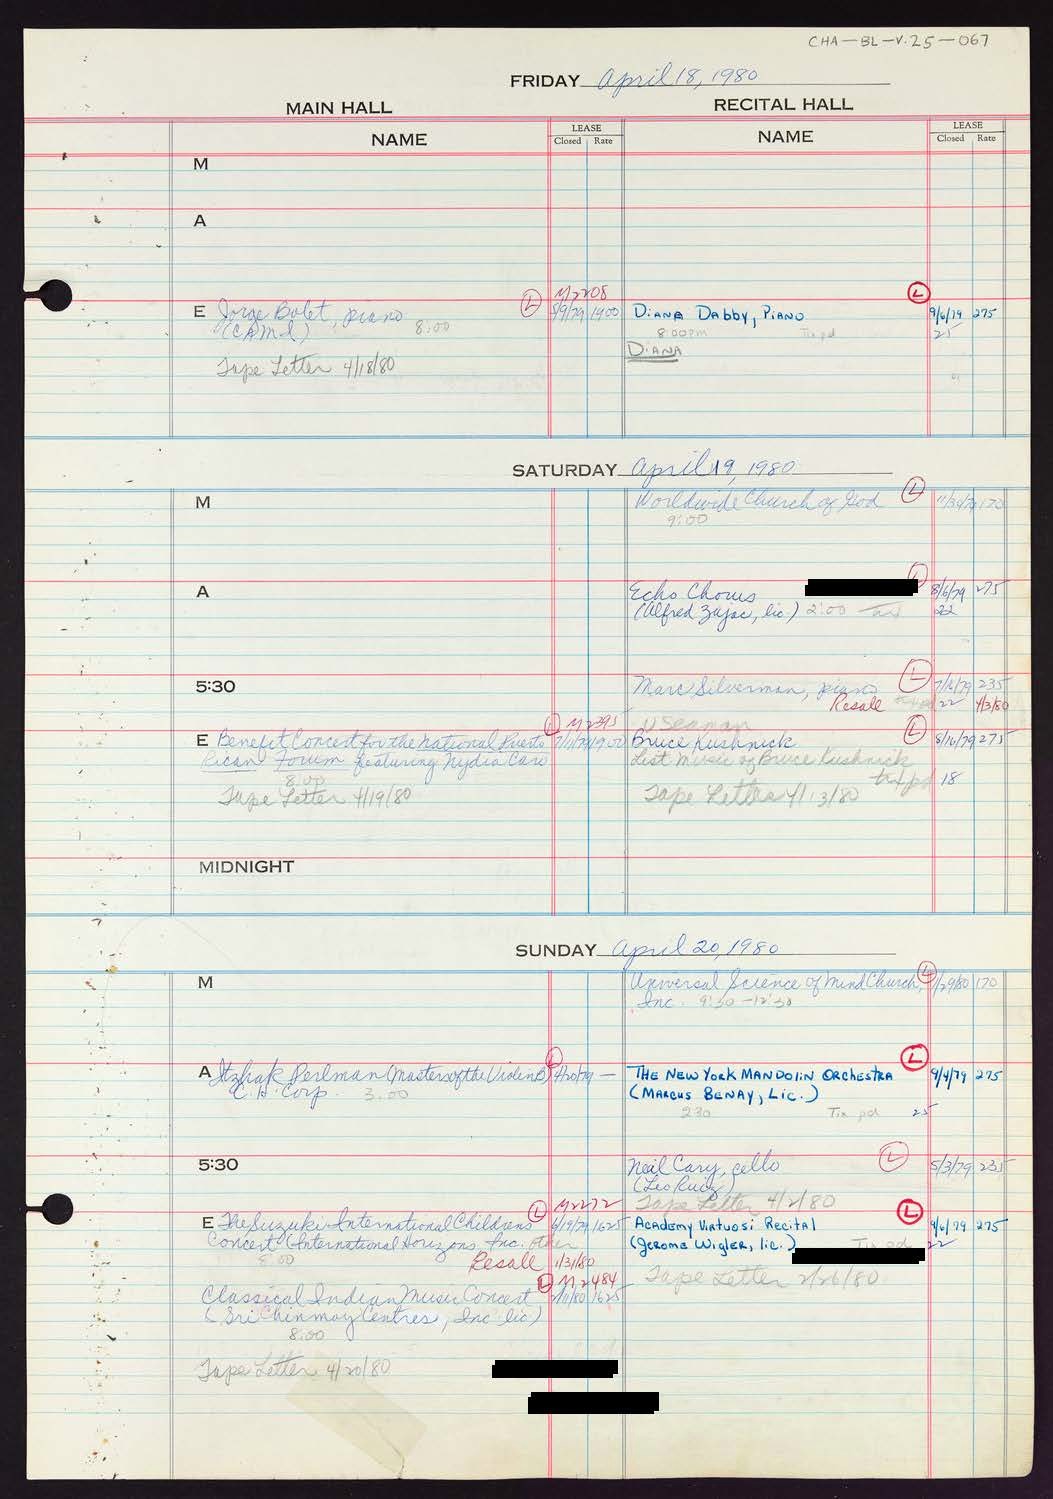 CHA-BL-V.25-067
FRIDAY April 18, 1980
MAIN HALL
RECITAL HALL
NAME
LEASE
Closed Rate
NAME
LEASE
Closed Rate
M
A
M2208
E Jorge Bolet, piano L 5/9/79 1900
(CAMI) 8:00
Tape Letter 4/18/80
L
Diana Dabby, Piano 9/6/79 275
8:00pm Tix pd 25
Diana
SATURDAY April 19, 1980
M
Worldwide Church of God L 170
9:00
A
Echo Chorus L 8/6/79 275
(Alfred Zajac, lic.) 2:00 22
5:30
Marc Silverman, piano L 7/16/79 235
Resale 22 4/3/80
L M2395
E Benefit Concert for the National Puerto 7/11/79 1900
Rican Forum featuring Nydia Caro
8:00
Tape Letter 4/19/80
Seaman
Bruce Kushnick L 8/16/79 275
List Music of Bruce Kushnick
tix pd 18
Tape Letter 4/13/80
MIDNIGHT
SUNDAY April 20, 1980
M
Universal Science of Mind Church, L 1/29/80 170
Inc. 9:30-12:30
L
A Itzhak Perlman (Masters of the Violin B) 4/20/79 —
C.H. Corp. 3:00
L
The New York Mandolin Orchestra 9/4/79 275
(Marcus Benay, Lic.)
230 Tix pd 25
5:30
Neil Cary, cello L 5/3/79 235
(Leo Ruiz)
Tape Letter 4/2/80
L M2272
E The Suzuki International Childrens 6/19/79 1625
Concert (International Horizons, Inc. other
8:00 Resale 1/31/80
L
Academy Virtuosi Recital 9/6/79 275
(Jerome Wigler, lic.) Tix pd 22
Tape Letter 2/26/80
L M2484
Classical Indian Music Concert 2/11/80 1625
(Sri Chinmoy Centres, Inc lic)
8:00
Tape Letter 4/20/80